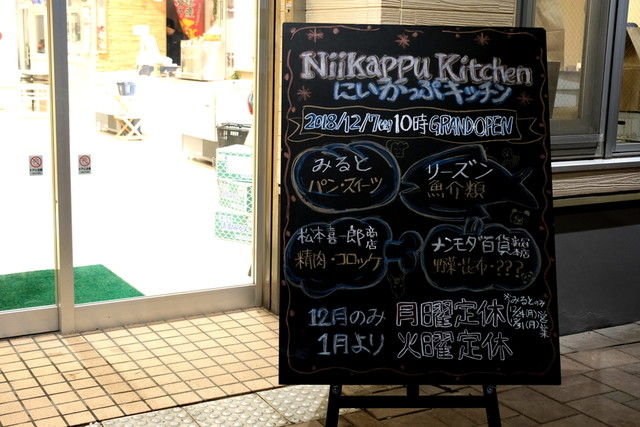 Niikappu Kitchen
にいかっぷキッチン
2018/12/7(金)10時GRAND OPEN
みると
パン・スイーツ
リーズン
魚介類
松本喜一郎商店
精肉・コロッケ
メンモダ百貨店
本店
野菜・昆布・???
12月のみ 月曜定休
※みるとのみ
12/24(月)
12/31(月)
営業
1月より 火曜定休